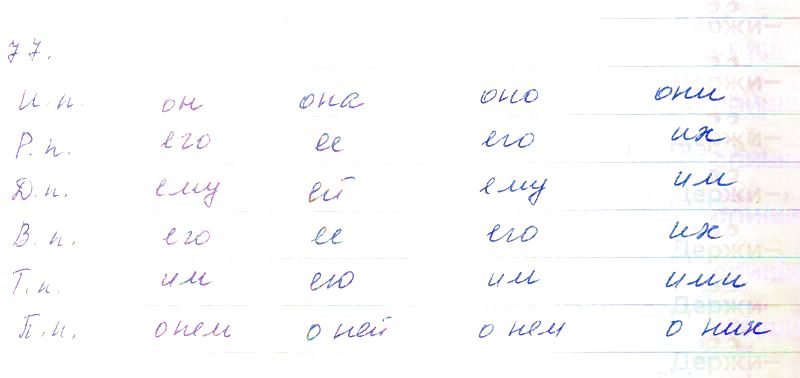 77.
И.п. он она оно они
Р.п. его ее его их
Д.п. ему ей ему им
В.п. его ее его их
Т.п. им ею им ими
П.п. о нем о ней о нем о них
Держи-
Держи-
Держи-
Держи-
Держи-
Держи-
Держи-